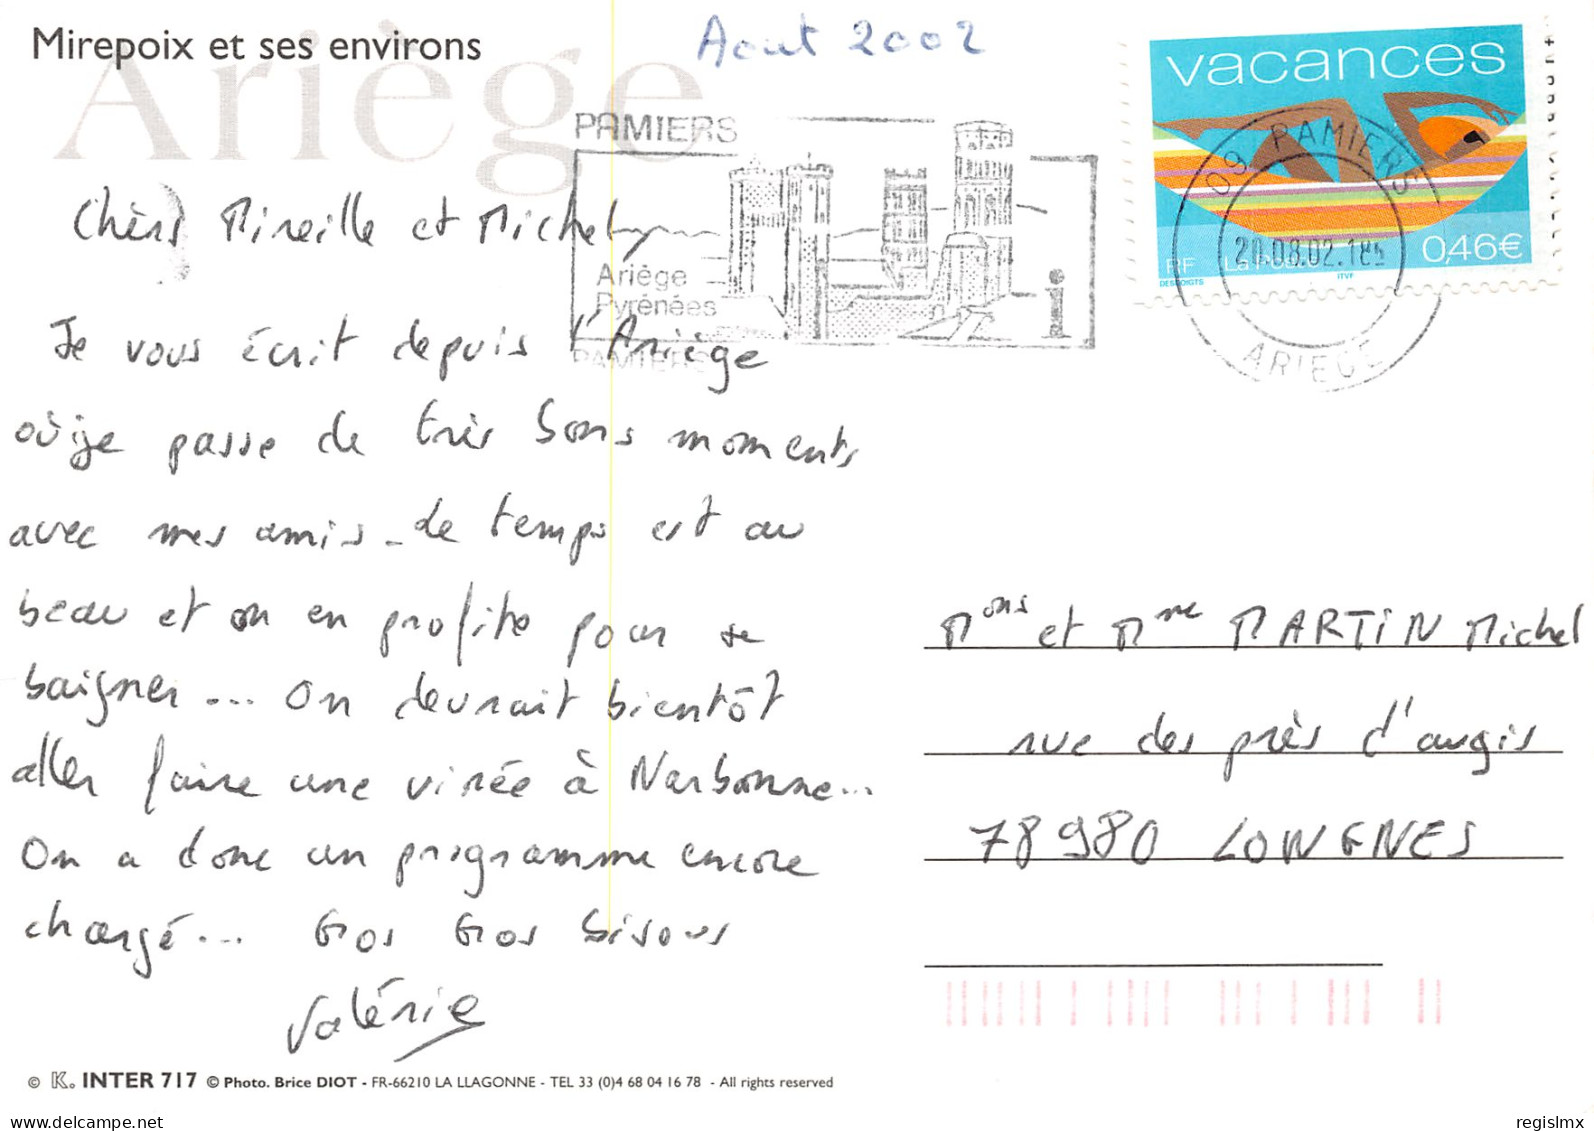 Mirepoix et ses environs
Ariège
Aout 2002
PAMIERS
Ariège
Pyrénées
PAMIERS
vacances
0,46€
RF
La Poste
DESDOIGTS
ITVF
09 PAMIERS
20.08.02.18
ARIEGE
Chers Mireille et Michel,
Je vous écrit depuis l'Ariège
où je passe de très bons moments
avec mes amis - le temps est au
beau et on en profite pour se
baigner... On devrait bientôt
aller faire une virée à Narbonne...
On a donc un programme encore
chargé... Gros Gros bisous
Valérie
Mons et Mme MARTIN Michel
rue des près d'augis
78980 LONGNES
© K. INTER 717 © Photo. Brice DIOT - FR-66210 LA LLAGONNE - TEL 33 (0)4 68 04 16 78 - All rights reserved
website delcampe.net
regislmx